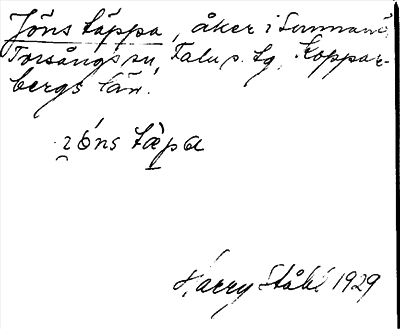 Jöns täppa, åker i Sunnanö,
Torsångs sn, Falu s. tg, Koppar-
bergs län.
jóns tæpa
Harry Ståhl 1929